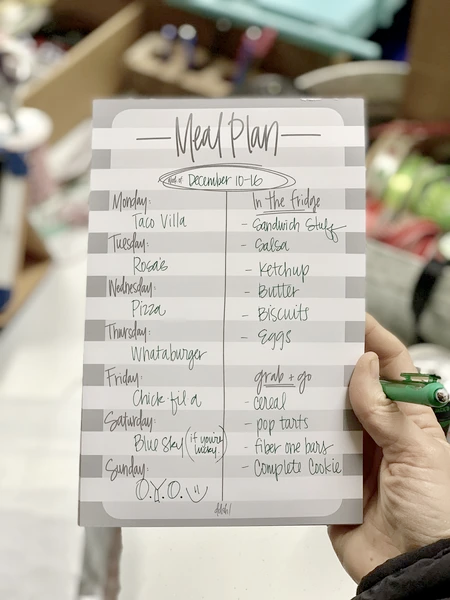 Meal Plan
Week of December 10-16
Monday:
Taco Villa
Tuesday:
Rosa's
Wednesday:
Pizza
Thursday:
Whataburger
Friday:
Chick fil a
Saturday:
Blue Sky (if you're lucky)
Sunday:
O.Y.O.
In the fridge
- Sandwich Stuff
- Salsa
- Ketchup
- Butter
- Biscuits
- Eggs
grab + go
- cereal
- pop tarts
- fiber one bars
- Complete Cookie